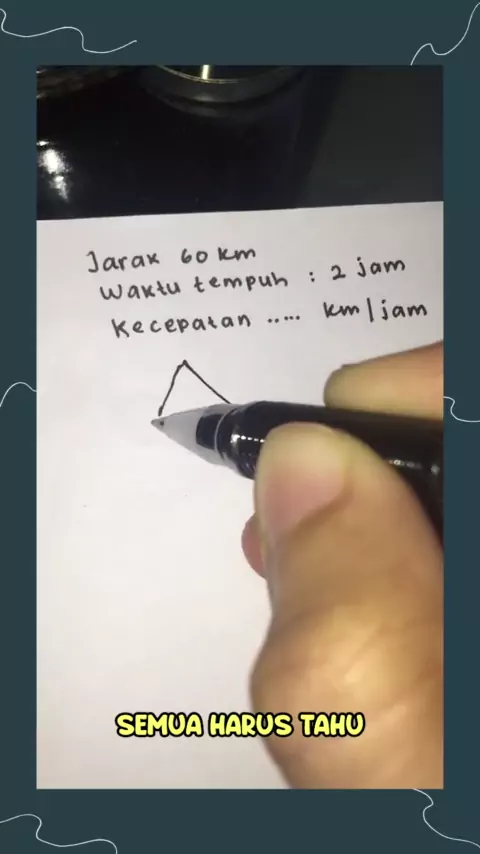 Jarak 60 km
Waktu tempuh : 2 jam
Kecepatan ..... km/jam
SEMUA HARUS TAHU